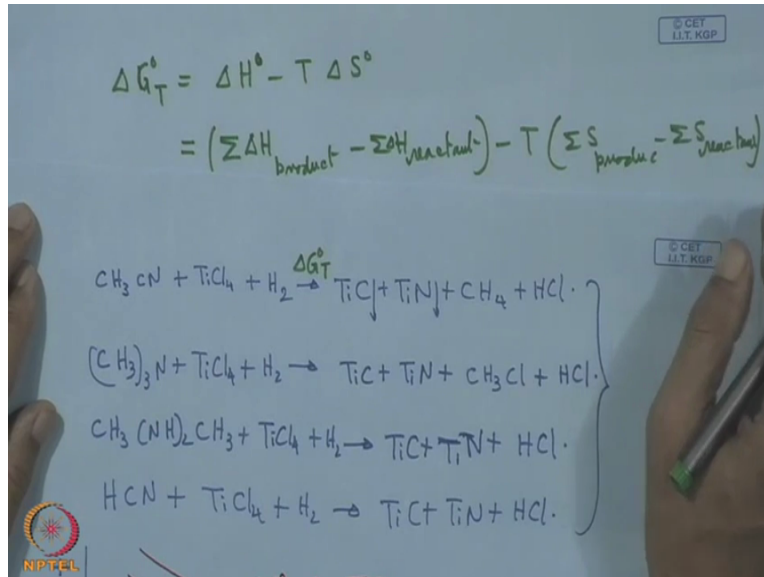 © CET
I.I.T. KGP
ΔG°T = ΔH° - T ΔS°
= (ΣΔHproduct - ΣΔHreactant) - T (ΣSproduc - ΣSreactant)
© CET
I.I.T. KGP
CH3CN + TiCl4 + H2 ΔG°T→ TiC↓ + TiN↓ + CH4 + HCl.
(CH3)3N + TiCl4 + H2 → TiC + TiN + CH3Cl + HCl.
CH3(NH)2CH3 + TiCl4 + H2 → TiC + TiN + HCl.
HCN + TiCl4 + H2 → TiC + TiN + HCl.
NPTEL